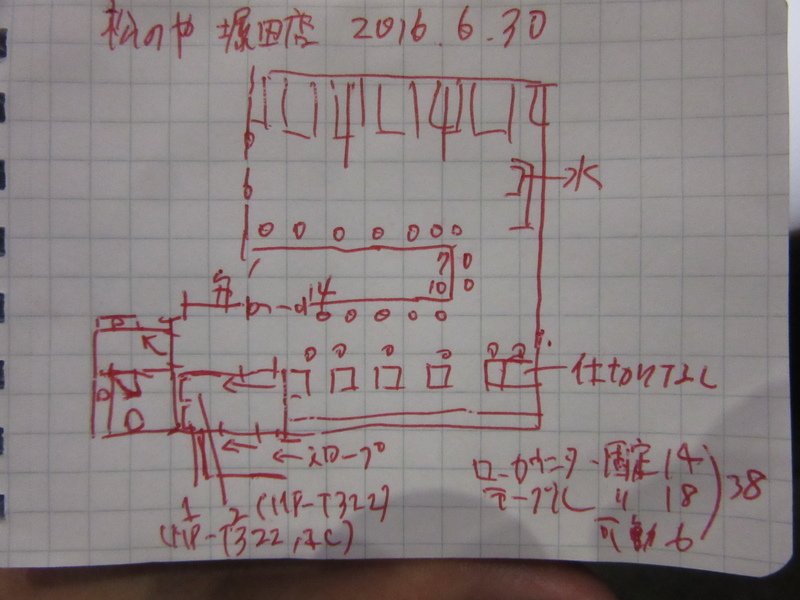 松のや 堀田店 2016.6.30
水
7
14
10
仕切りナシ
スロープ
1 2 (HP-T322)
(HP-T322, IC)
ローカウンター固定 14
テーブル 〃 18
可動 6
38